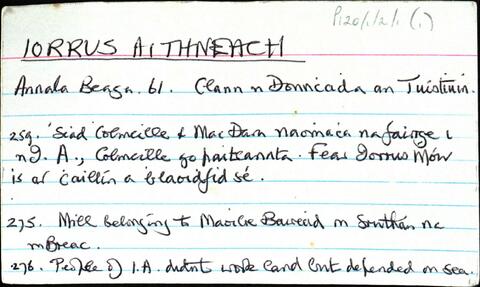 P120/1/2/1 (1)
IORRUS AITHNEACH
Annála Beaga. 61. Clann n Donncada an Tuistiuin.
259. 'Siad' Colmcille & Mac Dara naomaca na fairrge i
n I. A., Colmcille go háiteannta. Fear Iorrus Móir
is ar caillín a blaoidfid sé.
275. Mill belonging to Maoilre m Sruthán na
mBreac.
276. People of I.A. didnt work land but depended on sea.